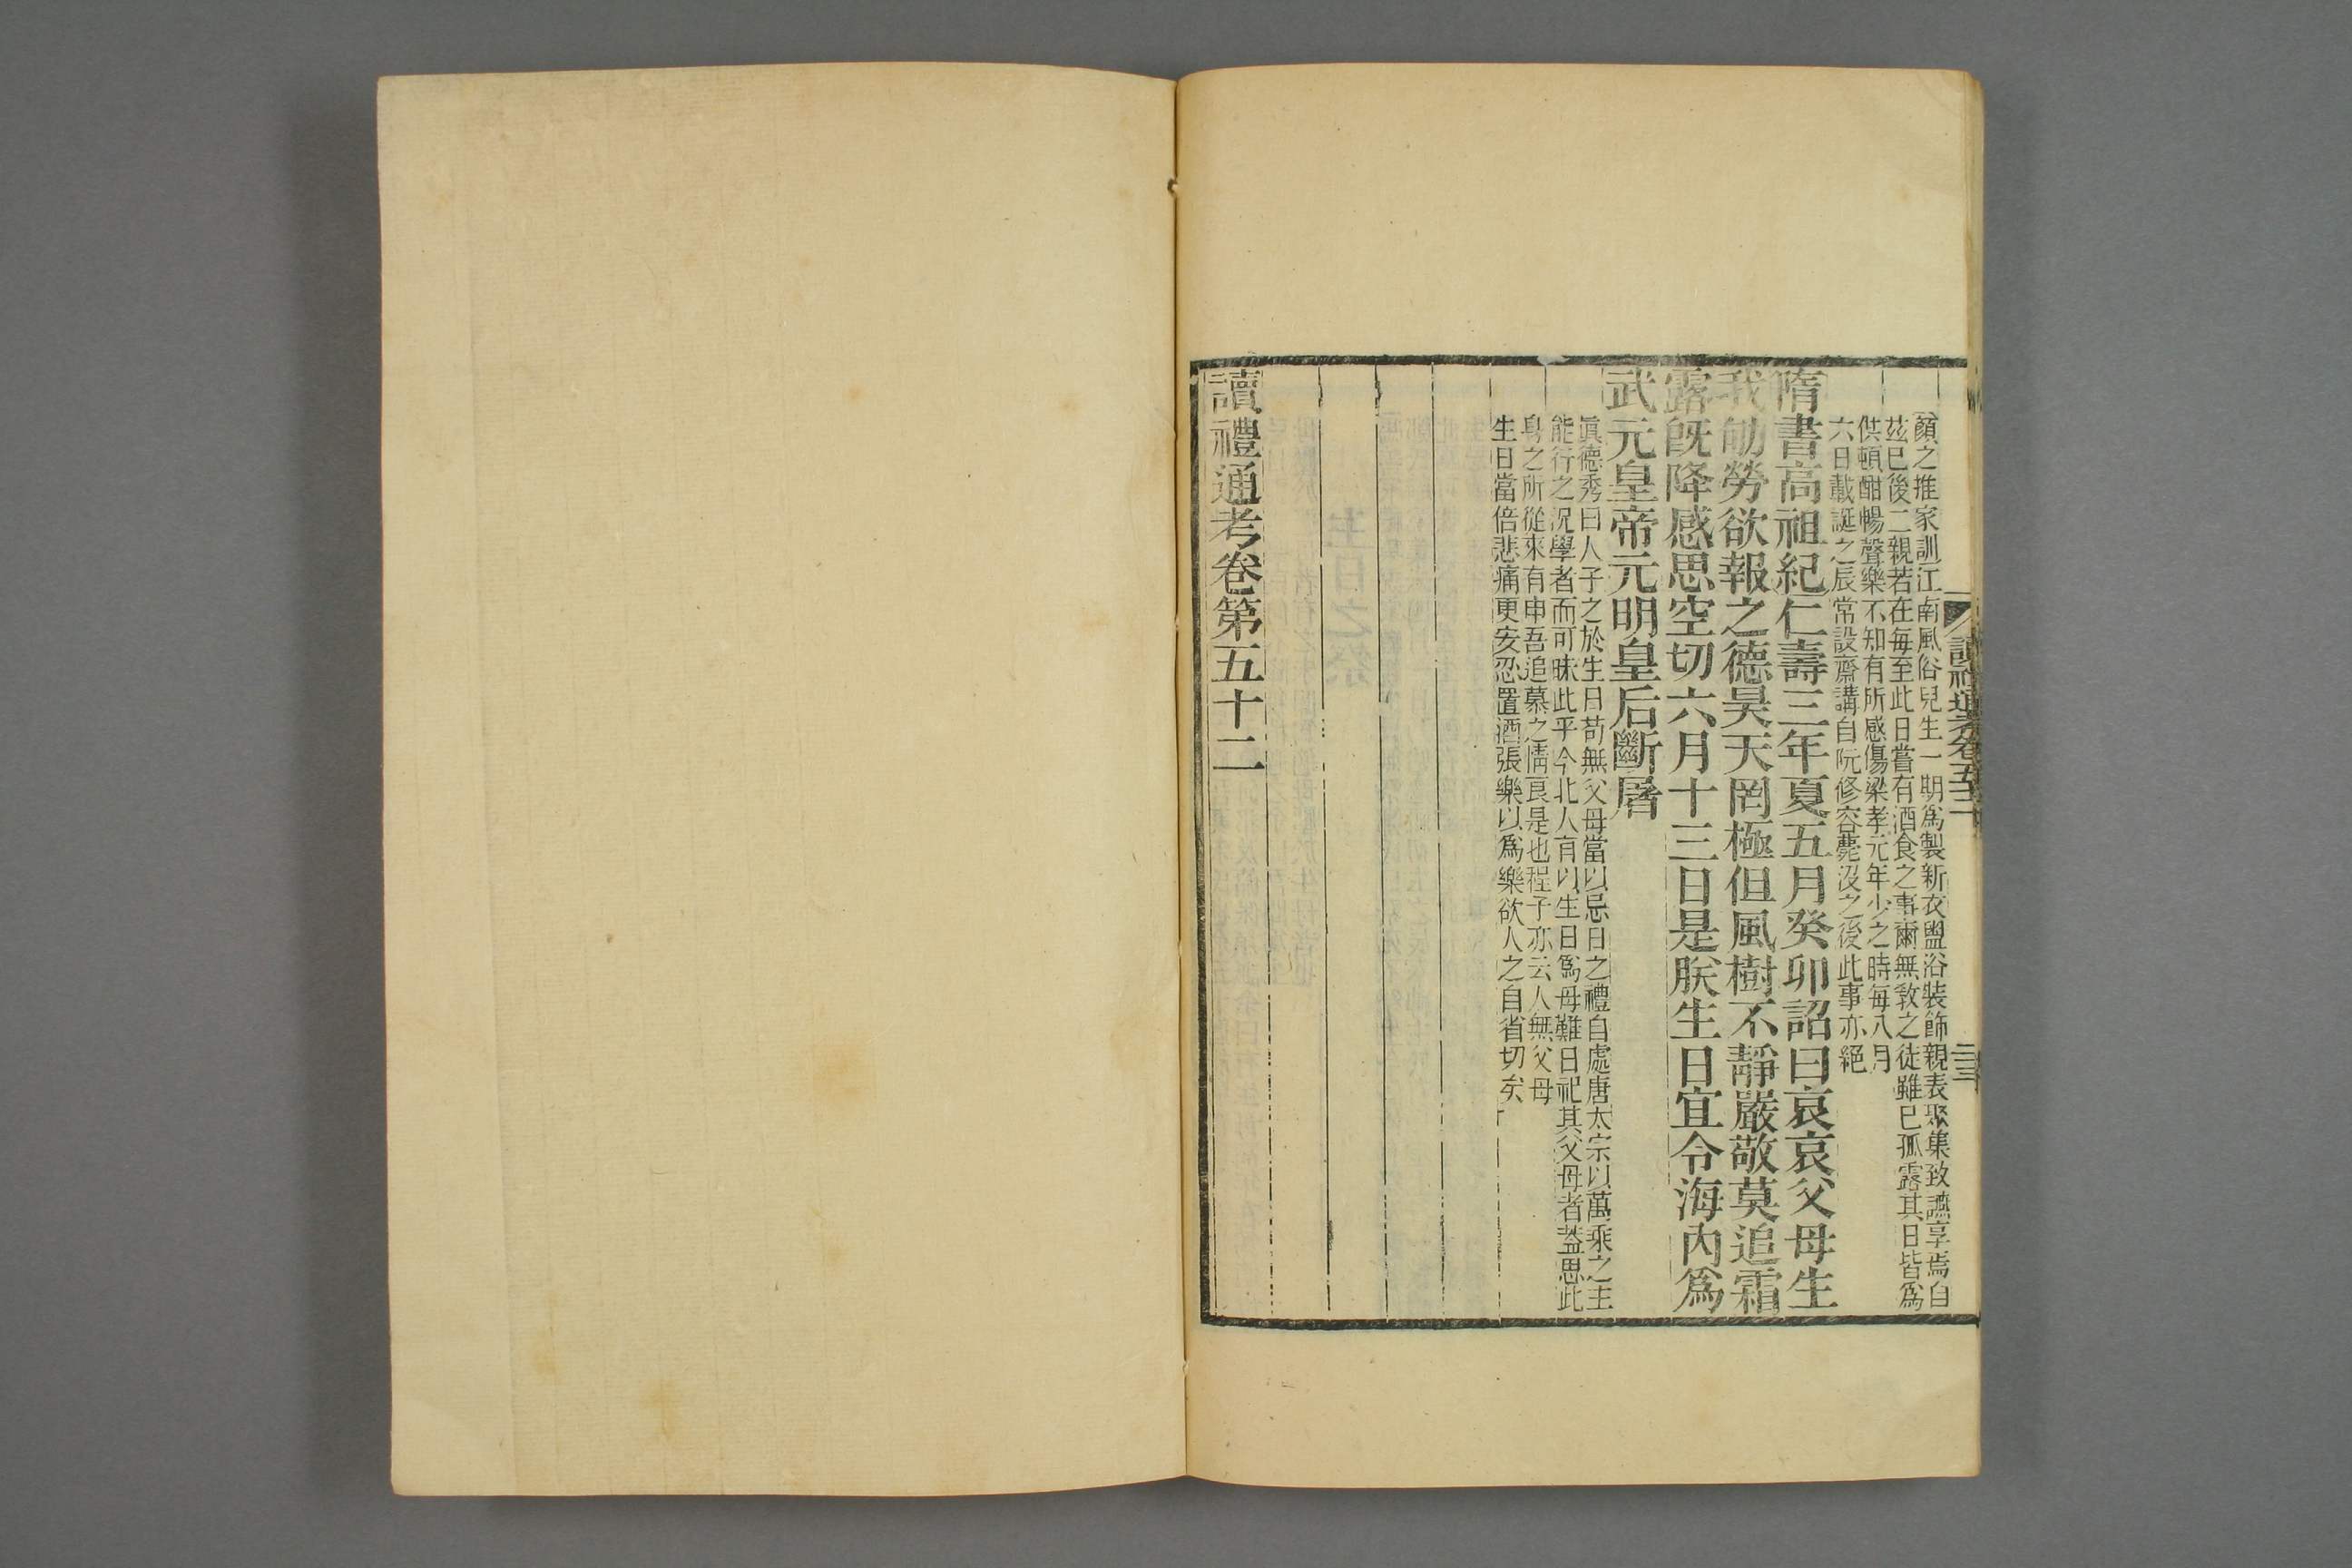 讀禮通考卷五十二
二三
顏之推家訓江南風俗兒生一期爲製新衣盥浴裝飾親表聚集致讌享焉自
茲已後二親若在每至此日嘗有酒食之事爾無敎之徒雖已孤露其日皆爲
供頓酣暢聲樂不知有所感傷梁孝元年少之時每八月
六日載誕之辰常設齋講自阮修容薨沒之後此事亦絕
隋書高祖紀仁壽三年夏五月癸卯詔曰哀哀父母生
我劬勞欲報之德昊天罔極但風樹不靜嚴敬莫追霜
露旣降感思空切六月十三日是朕生日宜令海內爲
武元皇帝元明皇后斷屠
眞德秀曰人子之於生日苟無父母當以忌日之禮自處唐太宗以萬乘之主
能行之況學者而可昧此乎今北人有以生日爲母難日祀其父母者葢思此
身之所從來有申吾追慕之情良是也程子亦云人無父母
生日當倍悲痛更安忍置酒張樂以爲樂欲人之自省切矣
讀禮通考卷第五十二